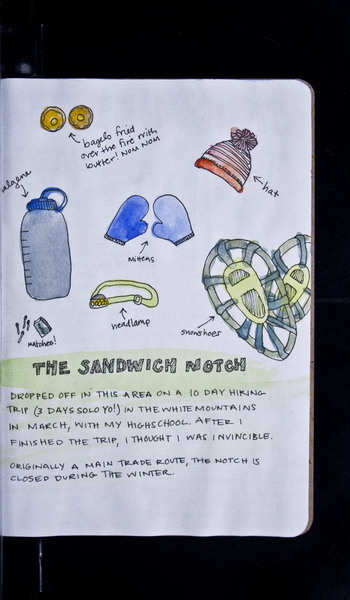 bagels fried
over the fire with
butter! NOM NOM
nalgene
hat
mittens
headlamp
snowshoes
matches!
THE SANDWICH NOTCH
DROPPED OFF IN THIS AREA ON A 10 DAY HIKING
TRIP (3 DAYS SOLO YO!) IN THE WHITE MOUNTAINS
IN MARCH, WITH MY HIGHSCHOOL. AFTER I
FINISHED THE TRIP, I THOUGHT I WAS INVINCIBLE.
ORIGINALLY A MAIN TRADE ROUTE, THE NOTCH IS
CLOSED DURING THE WINTER.